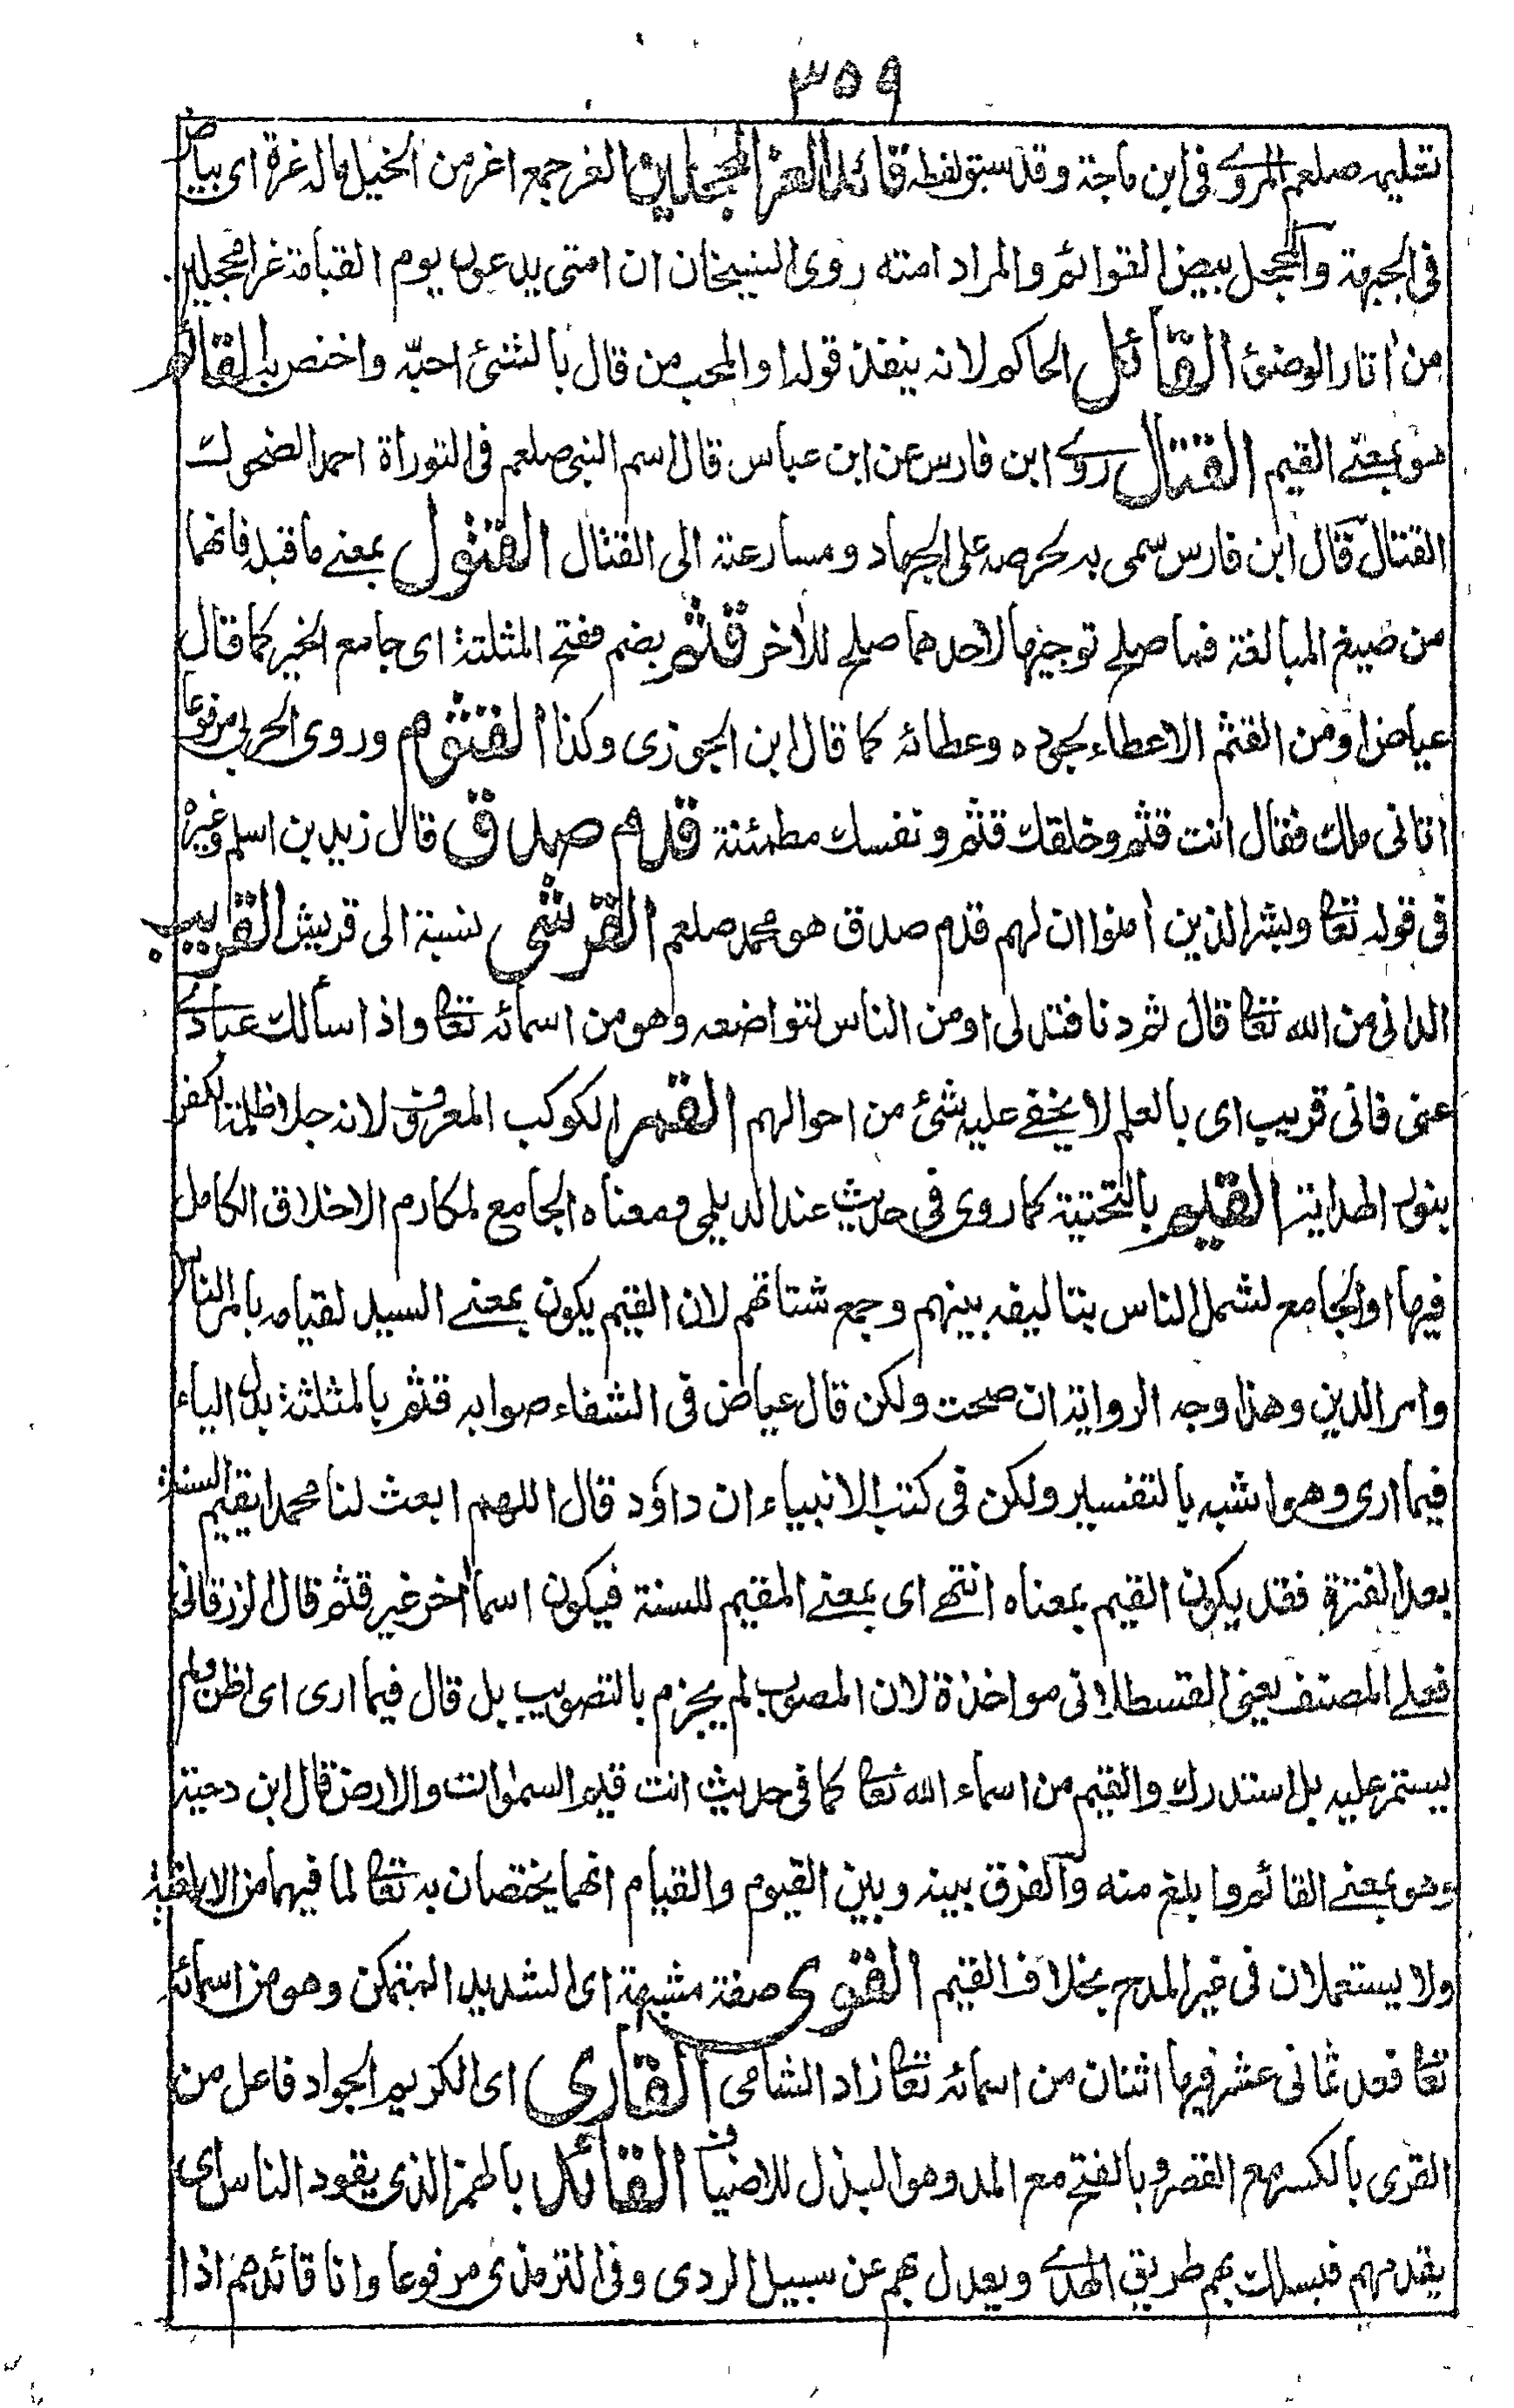 ٣٥٩
تعليمه صلعم المروى فى ابن ماجة وقد سبق لفظه قائد الغر المحجلين الغر جمع اغر من الخيل ماله غرة اى بياض
فى الجبهة والمحجل بيض القوائم والمراد امته روى الشيخان ان امتى يدعون يوم القيامة غرا محجلين
من اثار الوضئ القائل الحاكم لانه ينفذ قوله او المحب من قال بالشئ احبّه واختص به القائم
هو بمعنے القيم القتال روى ابن فارس عن ابن عباس قال اسم النبى صلعم فى التوراة احمد الضحوك
القتال قال ابن فارس سمى به لحرصه على الجهاد ومسارعته الى القتال القتول بمعنے ما قبله فانهما
من صيغ المبالغة فما صلح توجيها لاحدهما صلح للاخر قثم بضم ففتح المثلثة اى جامع الخير كما قال
عياض او من القثم الاعطاء لجوده وعطائه كما قال ابن الجوزى وكذا القثوم وروى الحربى مرفوعا
اتانى ملك فقال انت قثم وخلقك قثم ونفسك مطمئنة قدم صدق قال زيد بن اسلم وغيره
فى قوله تعا وبشر الذين امنوا ان لهم قدم صدق هو محمد صلعم القرشى نسبة الى قريش القريب
الدانى من الله تعا قال ثم دنا فتدلى او من الناس لتواضعه وهو من اسمائه تعا واذا سألك عبادى
عنى فانى قريب اى بالعلم لا يخفے عليه شئ من احوالهم القمر الكوكب المعروف لانه جلا ظلمة الكفر
بنور الهداية القيم بالتحتية كما روى فى حديث عند الديلمى ومعناه الجامع لمكارم الاخلاق الكامل
فيها او الجامع لشمل الناس بتاليفه بينهم وجمع شتاتهم لان القيم يكون بمعنے السيد لقيامه بامر الناس
وامر الدين وهذا وجه الرواية ان صحت ولكن قال عياض فى الشفاء صوابه قثم بالمثلثة بدل الياء
فيما ارى وهو اشبه بالتفسير ولكن فى كتب الانبياء ان داؤد قال اللهم ابعث لنا محمدا يقيم السنة
بعد الفترة فقد يكون القيم بمعناه انتهے اى بمعنے المقيم للسنة فيكون اسما اخر غير قثم قال الزرقانى
فعلے المصنف يعنى القسطلانى مواخذة لان المصوب لم يجزم بالتصويب بل قال فيما ارى اى اظن ولم
يستمر عليه بل استدرك والقيم من اسماء الله تعا كما فى حديث انت قيم السمٰوات والارض قال ابن دحية
وهو بمعنے القائم وابلغ منه والفرق بينه وبين القيوم والقيام انهما يختصان به تعا لما فيهما من الابلغية
ولا يستعملان فى غير المدح بخلاف القيم القوى صفة مشبهة اى الشديد المتمكن وهو من اسمائه
تعا فعد ثمانى عشر فيها اثنان من اسمائه تعا زاد الشامى القارى اى الكريم الجواد فاعل من
القرى بالكسر مع القصر وبالفتح مع المد وهو البذل للاضياف القائد بالهمز الذى يقود الناس اى
يقدمهم فيسلك بهم طريق الهدى ويعدل بهم عن سبيل الردى وفى الترمذى مرفوعا وانا قائدهم اذا